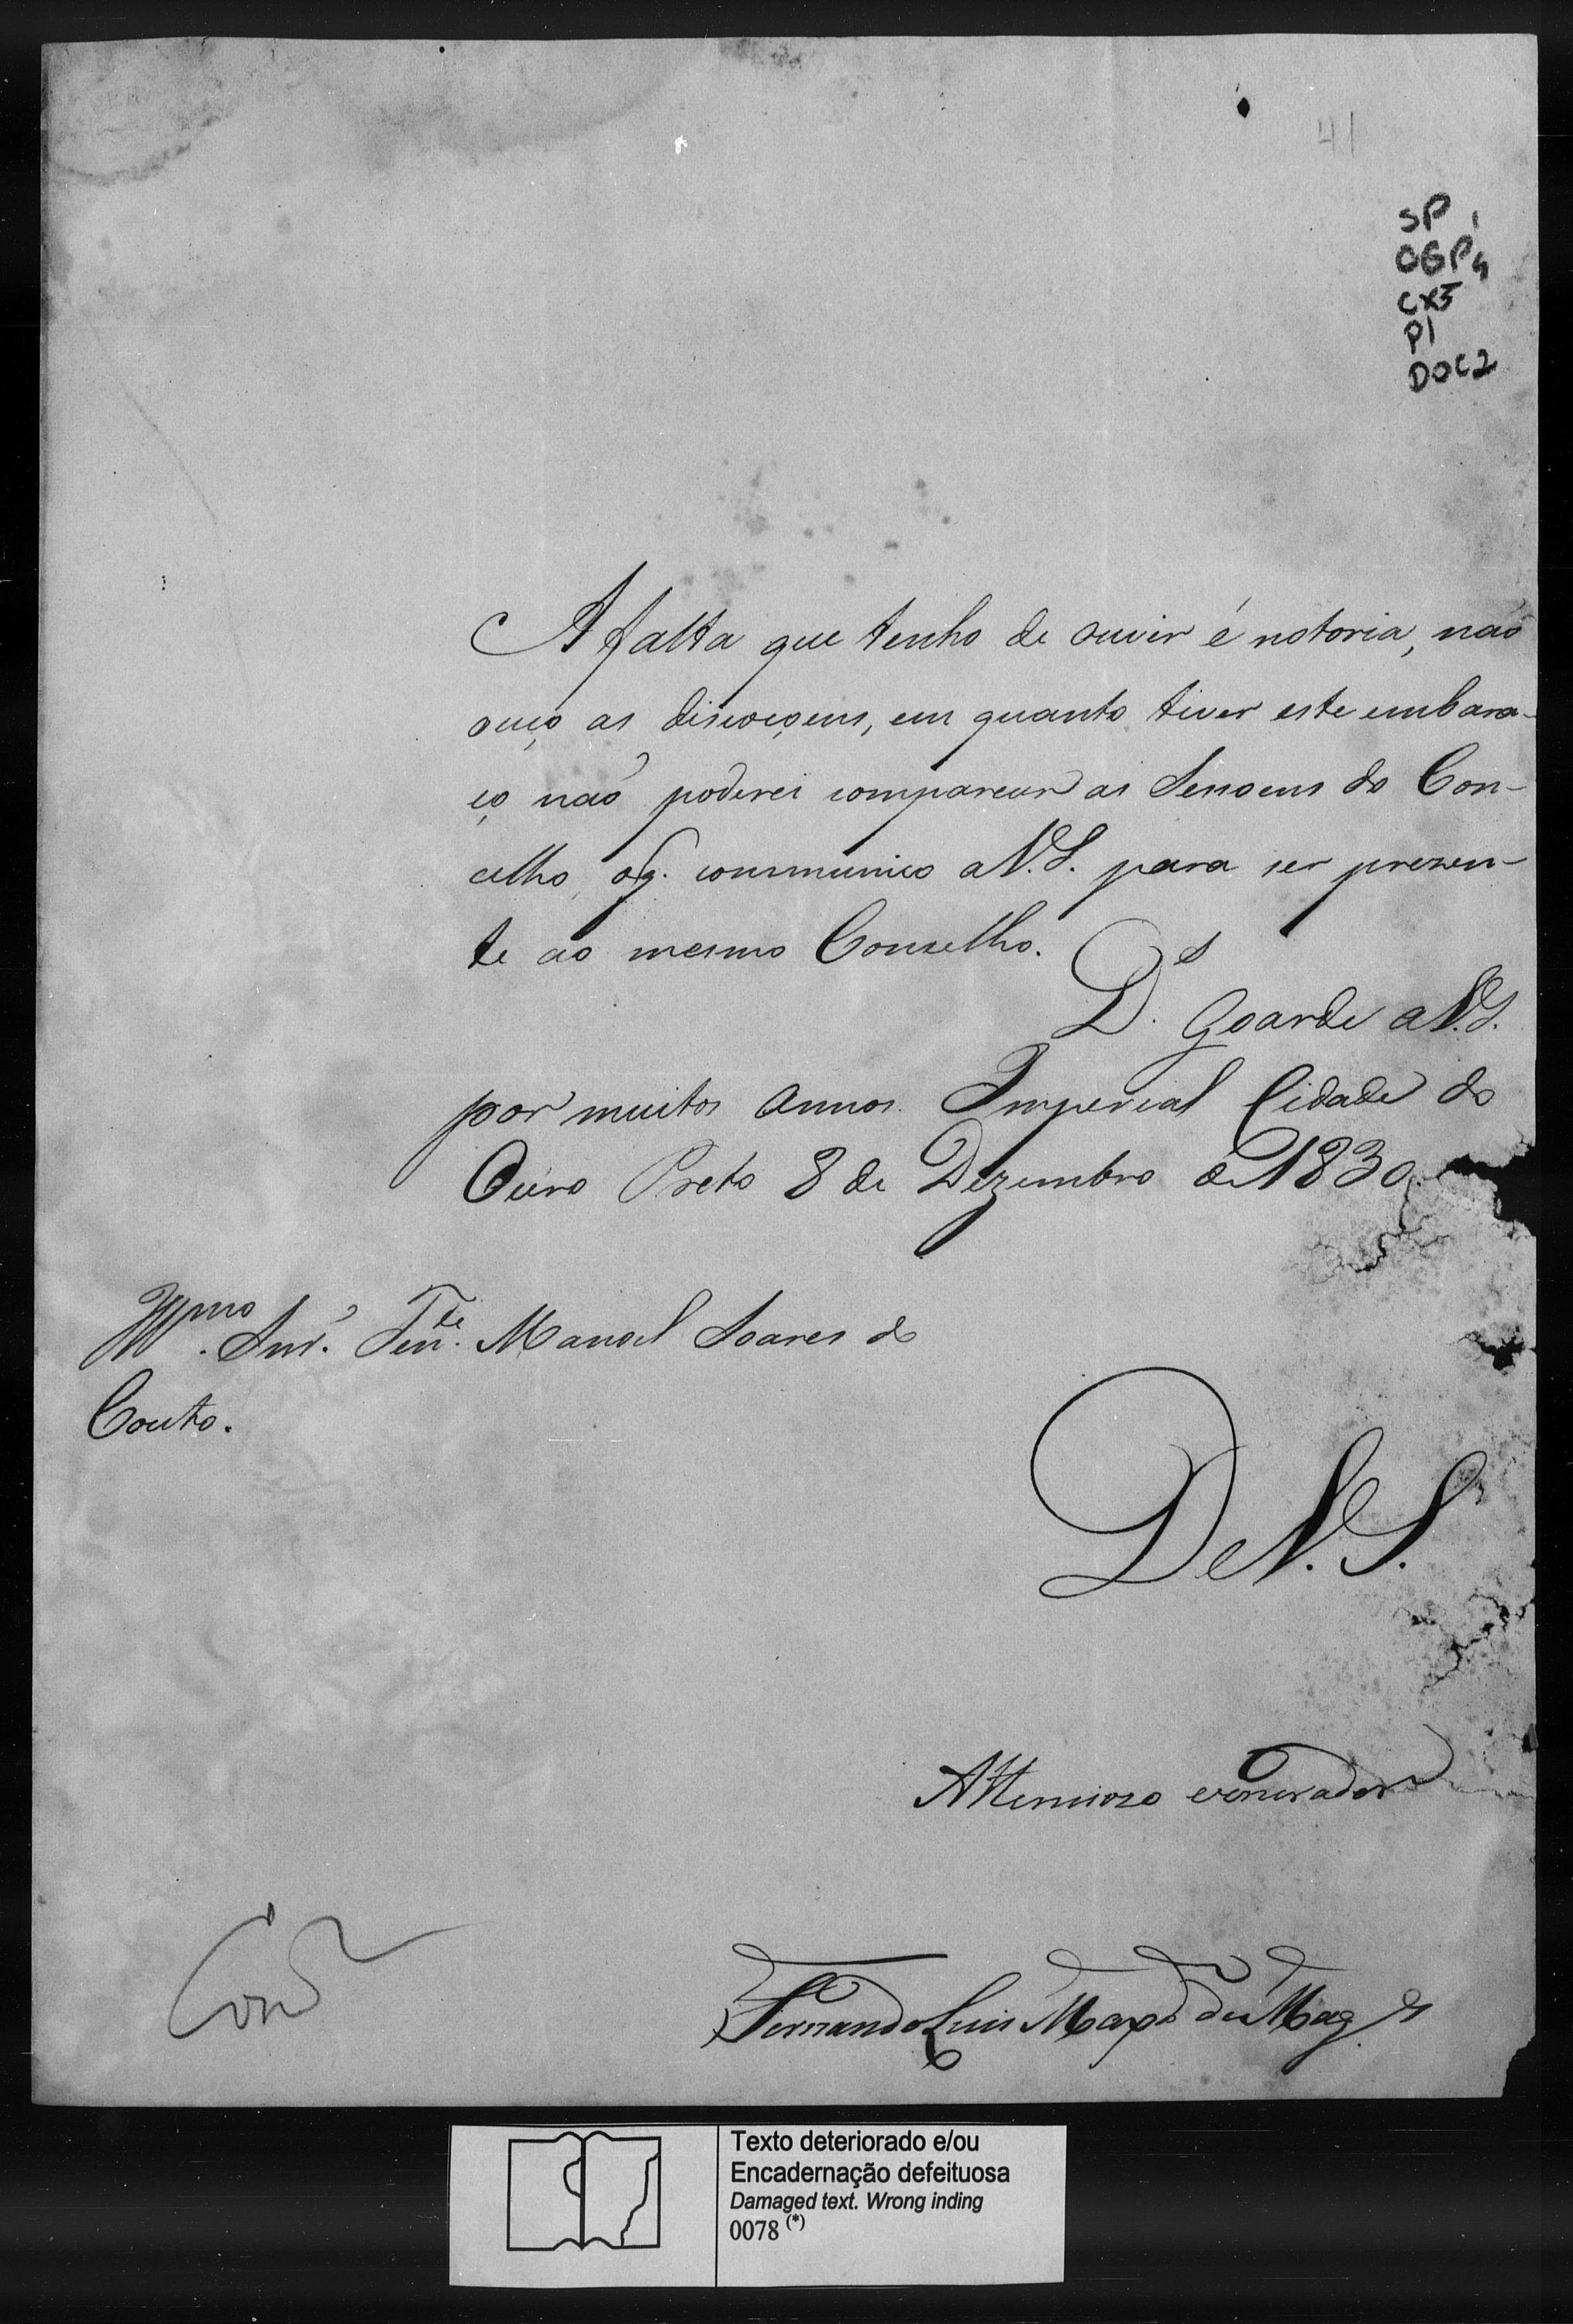 41
SP 1
OGP4
CX5
P1
DOC2
A falta que tenho de ouvir é notoria, não
ouço as discoçoens, em quanto tiver este embara-
ço não poderei comparecer as Sessoens do Con-
celho, oq. communico a V.S. para ser prezen-
te ao mesmo Conselho.
D.s Goarde a V.S.
por muitos annos. Imperial Cidade do
Ouro Preto 8 de Dezembro de 1830
Illmo. Snr. Tente. Manoel Soares do
Couto.
De V.S.
Attencioso venerador
Fernando Luis Maxdo de Mag.es
Texto deteriorado e/ou
Encadernação defeituosa
Damaged text. Wrong inding
0078 (*)